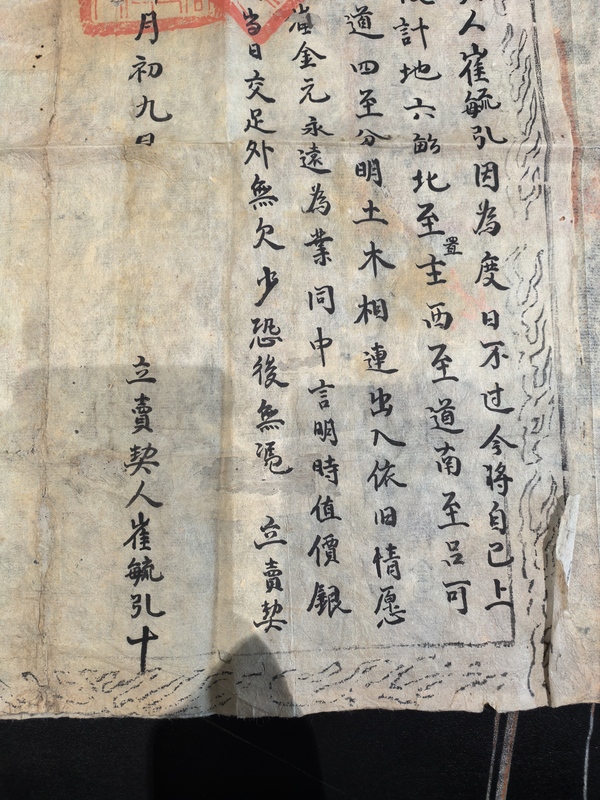 人崔毓引因為度日不过今將自己上
計地六畝北至主置西至道南至吕可
道四至分明土木相連出入依旧情愿
崔金元永遠為業同中言明時值價銀
当日交足外無欠少恐後無凴 立賣契
月初九日
立賣契人崔毓引十